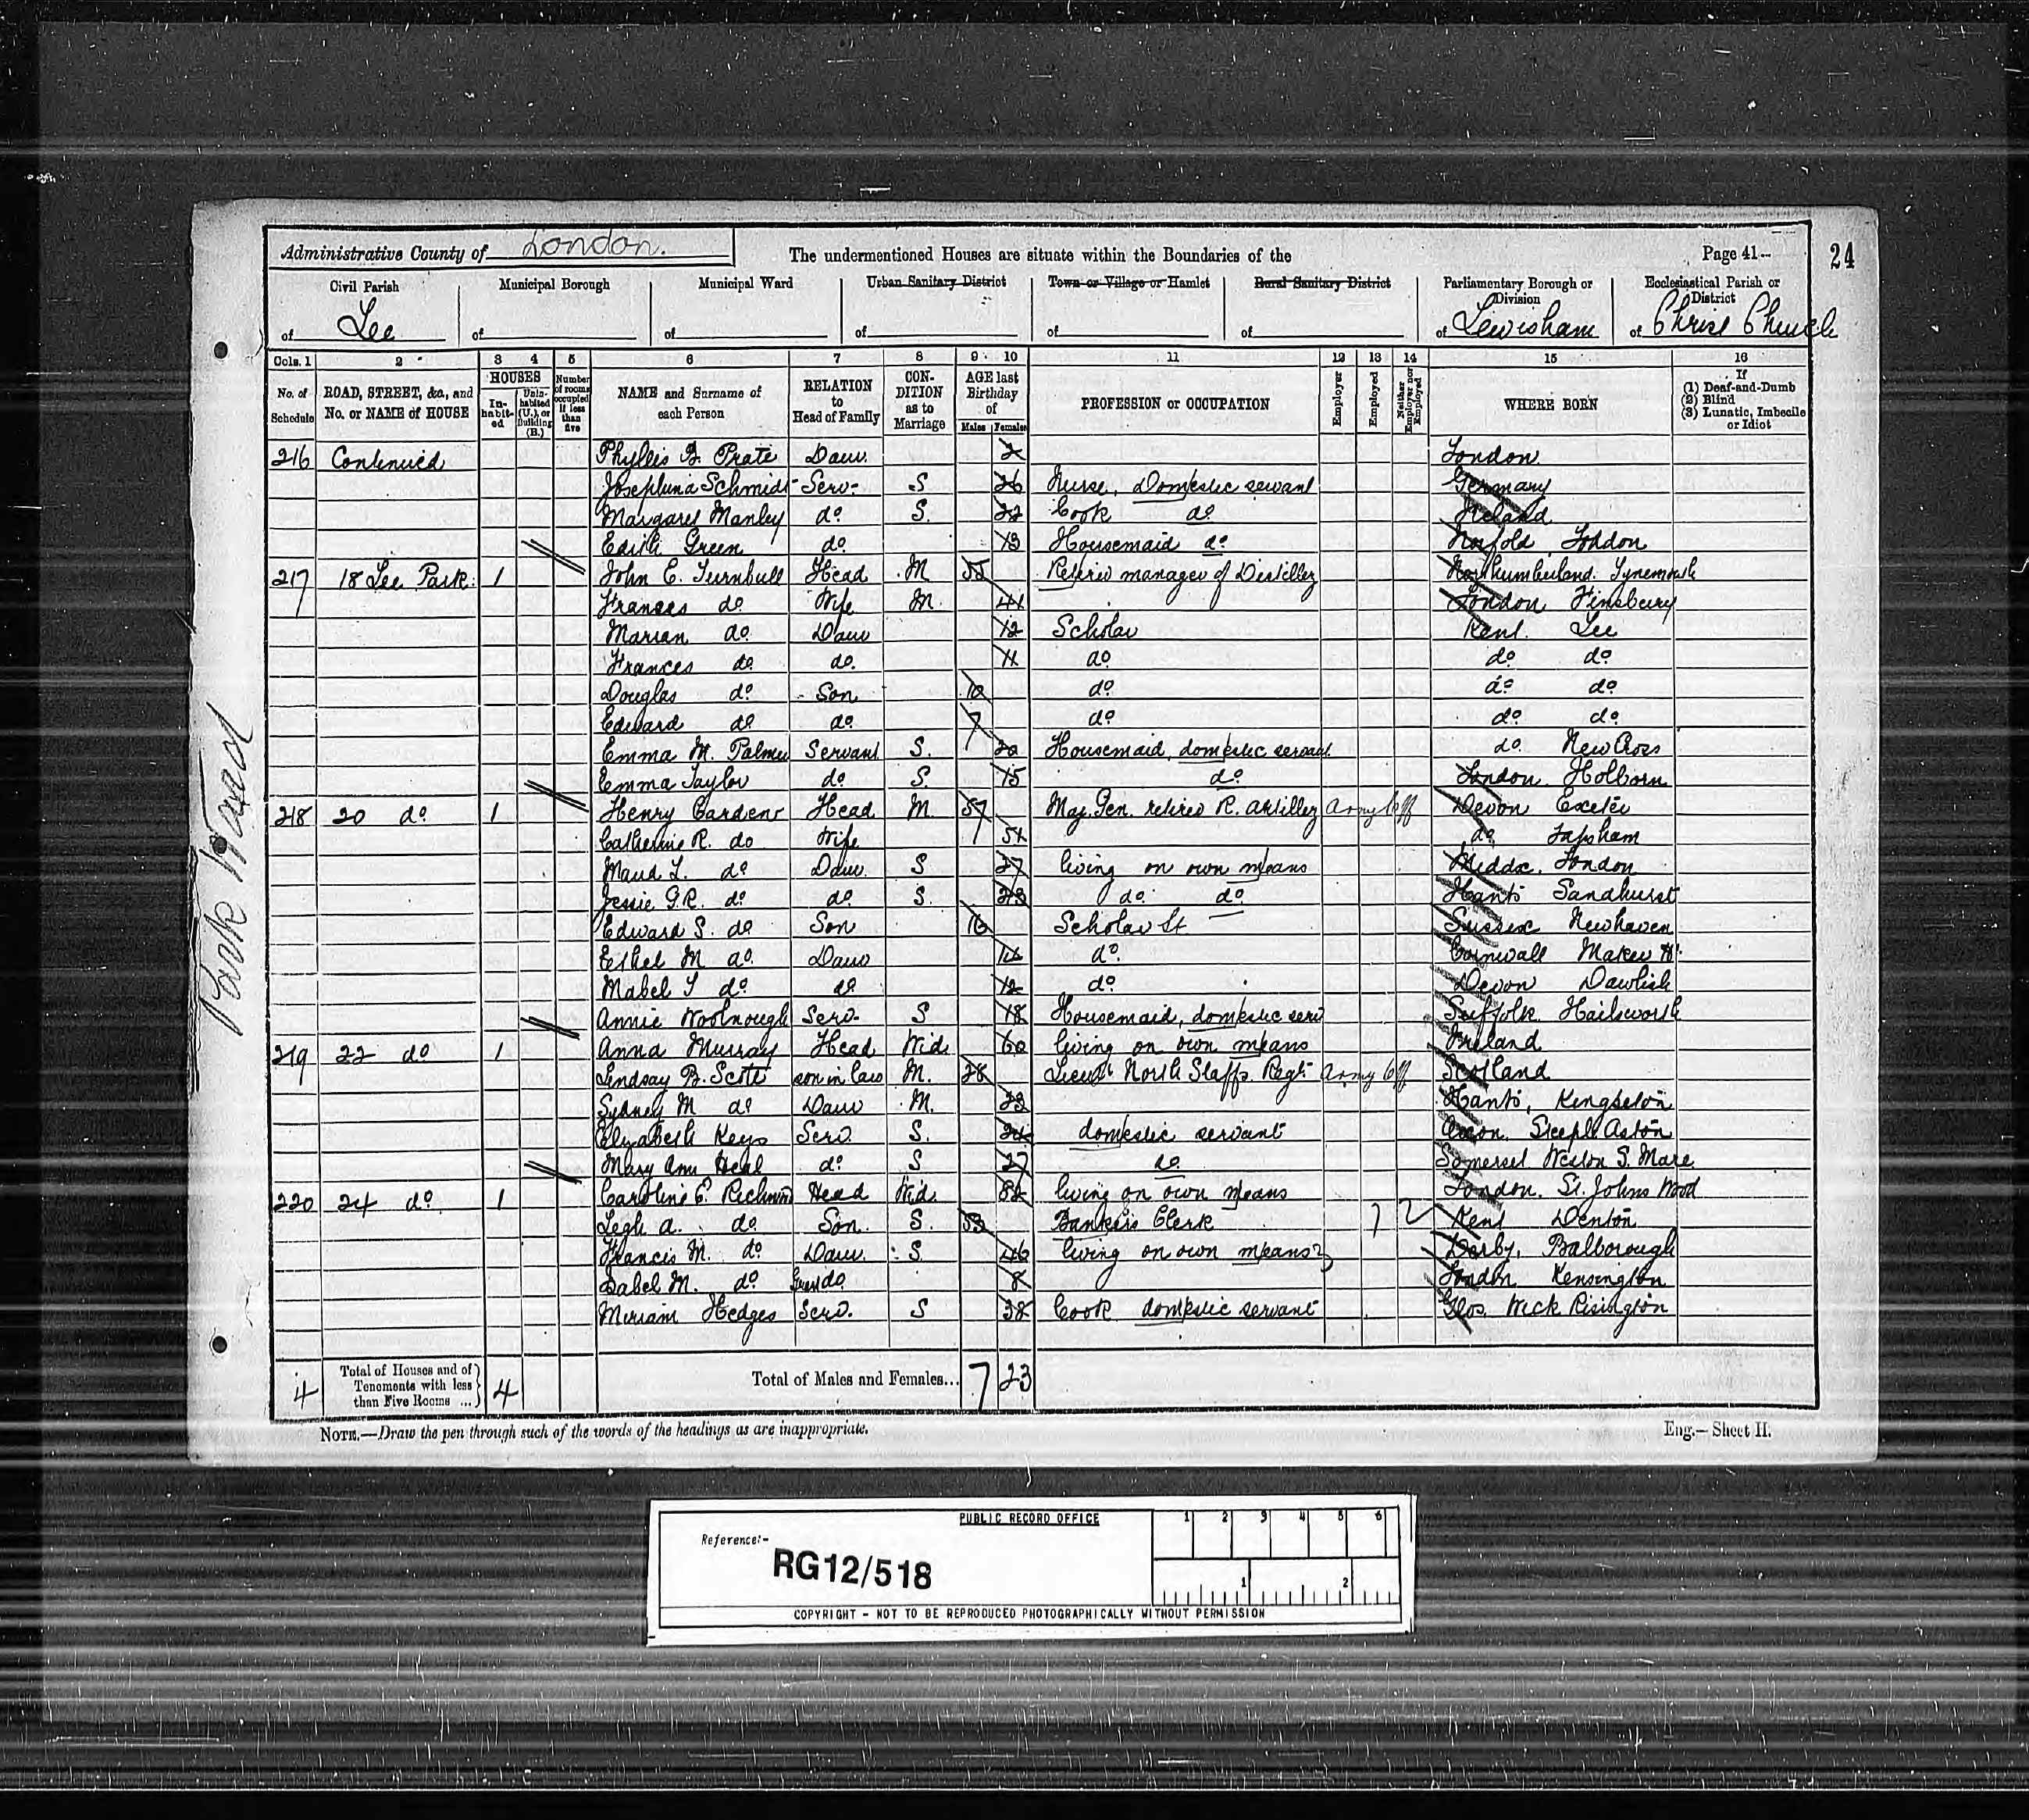 Administrative County of London.
The undermentioned Houses are situate within the Boundaries of the
Page 41
24
Civil Parish of Lee
Municipal Borough of
Municipal Ward of
Urban Sanitary District of
Town or Village or Hamlet of
Rural Sanitary District of
Parliamentary Borough or Division of Lewisham
Ecclesiastical Parish or District of Christ Church
Cols. 1 2 3 4 5 6 7 8 9 10 11 12 13 14 15 16
No. of Schedule
ROAD, STREET, &c., and No. or NAME of HOUSE
HOUSES
Inhabited
Uninhabited (U.), or Building (B.)
Number of rooms occupied if less than five
NAME and Surname of each Person
RELATION to Head of Family
CONDITION as to Marriage
AGE last Birthday of
Males Females
PROFESSION or OCCUPATION
Employer
Employed
Neither Employer nor Employed
WHERE BORN
If
(1) Deaf-and-Dumb
(2) Blind
(3) Lunatic, Imbecile or Idiot
216 Continued Phyllis B. Prate Daur. 2 London
Josephina Schmidt Serv. S 26 Nurse, Domestic servant Germany
Margaret Manley do. S. 22 Cook do. Ireland
Edith Green do. Housemaid do. London
217 18 Lee Park 1 John E. Turnbull Head M 55 Retired manager of Distillery Northumberland. Tynemouth
Frances do Wife M. 41 London Finsbury
Marian do. Daur 12 Scholar Kent. Lee
Frances do do. 11 do do do
Douglas do Son 10 do do do
Edward do do. 7 do do do.
Emma M. Palmer Servant S. 20 Housemaid, domestic servant do. New Cross
Emma Taylor do. S. 15 do. London. Holborn
218 20 do 1 Henry Cardew Head M. 57 Maj. Gen. retired R. Artillery Army Off Devon Exeter
Catherine R. do Wife 51 do. Topsham
Maud L. do Daur. S 27 living on own means Middx. London
Jessie G.R. do. do. S. 23 do. do. Hants Sandhurst
Edward S. do Son 16 Scholar St Sussex Newhaven
Ethel M do. Daur 14 do. Cornwall Maker
Mabel do. do 12 do. Devon Dawlish
Annie Woolnough Serv. S 18 Housemaid, domestic serv Suffolk Halisworth
219 22 do 1 Anna Murray Head Wid. 60 living on own means Ireland
Lindsay B. Scott son in law M. 28 Lieut. North Staffs. Regt. Army Off Scotland
Sydney M do Daur M. 23 Hants, Kingston
Elizabeth Keys Serv. S. 24 domestic servant Oxon. Steeple Aston
Mary Ann Heal do. S 27 do. Somerset Weston S. Mare
220 24 do. 1 Caroline E. Richmond Head Wid. 82 living on own means London. St. Johns Wood
Legh A. do Son S. 53 Bankers Clerk Kent Denton
Francis M. do Daur. S 46 living on own means Derby. Balborough
Isabel M. do Grand do. 8 London Kensington
Miriam Hedges Serv. S 38 Cook domestic servant Glos. Wick Risington
4 Total of Houses and of Tenements with less than Five Rooms ... 4
Total of Males and Females... 7 23
NOTE.—Draw the pen through such of the words of the headings as are inappropriate.
Eng.—Sheet II.
Park Ward
PUBLIC RECORD OFFICE
1 2 3 4 5 6
Reference:-
RG12/518
1 2
COPYRIGHT - NOT TO BE REPRODUCED PHOTOGRAPHICALLY WITHOUT PERMISSION